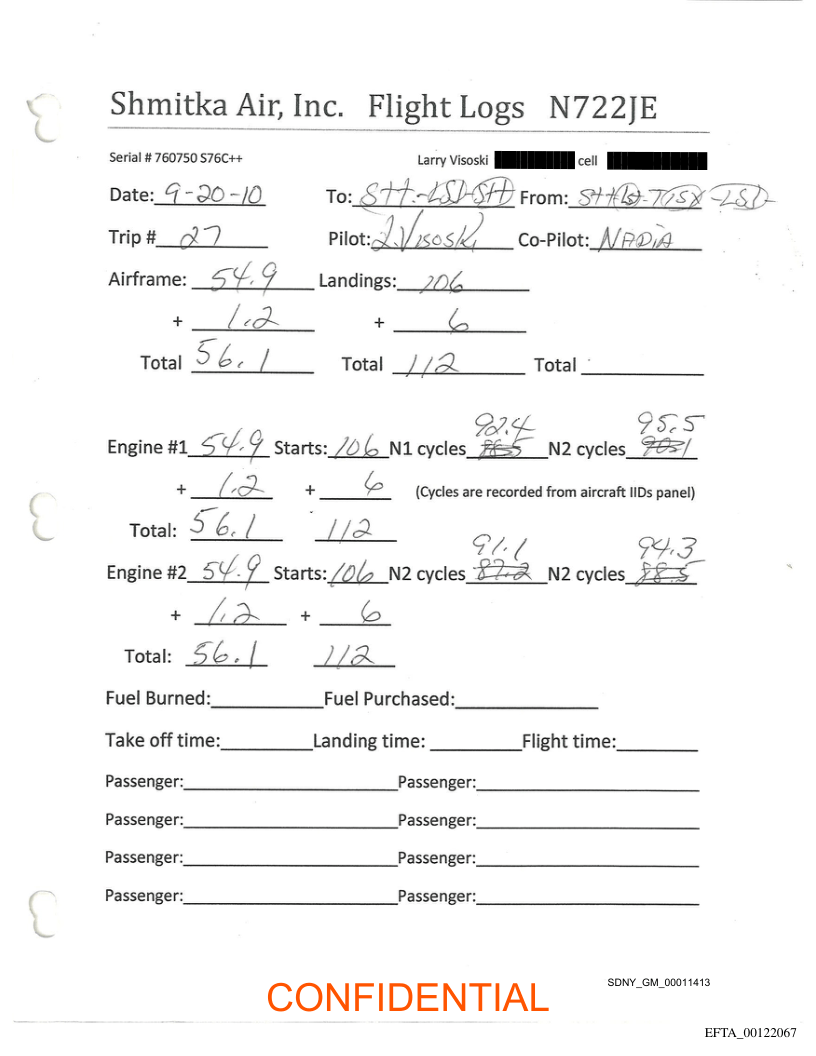 Shmitka Air, Inc. Flight Logs N722JE
Serial # 760750 S76C++ Larry Visoski cell
Date: 9-20-10 To: STT-LSJ-STT From: STT
Trip # 27 Pilot: L.Visoski Co-Pilot: NADiA
Airframe: 54.9 Landings: 106
+ 1.2 + 6
Total 56.1 Total 112 Total
92.4 95.5
Engine #1 54.9 Starts: 106 N1 cycles N2 cycles
+ 1.2 + 6 (Cycles are recorded from aircraft IIDs panel)
Total: 56.1 112
91.1 94.3
Engine #2 54.9 Starts: 106 N2 cycles 87.2 N2 cycles 88.5
+ 1.2 + 6
Total: 56.1 112
Fuel Burned: Fuel Purchased:
Take off time: Landing time: Flight time:
Passenger: Passenger:
Passenger: Passenger:
Passenger: Passenger:
Passenger: Passenger:
SDNY_GM_00011413
CONFIDENTIAL
EFTA_00122067